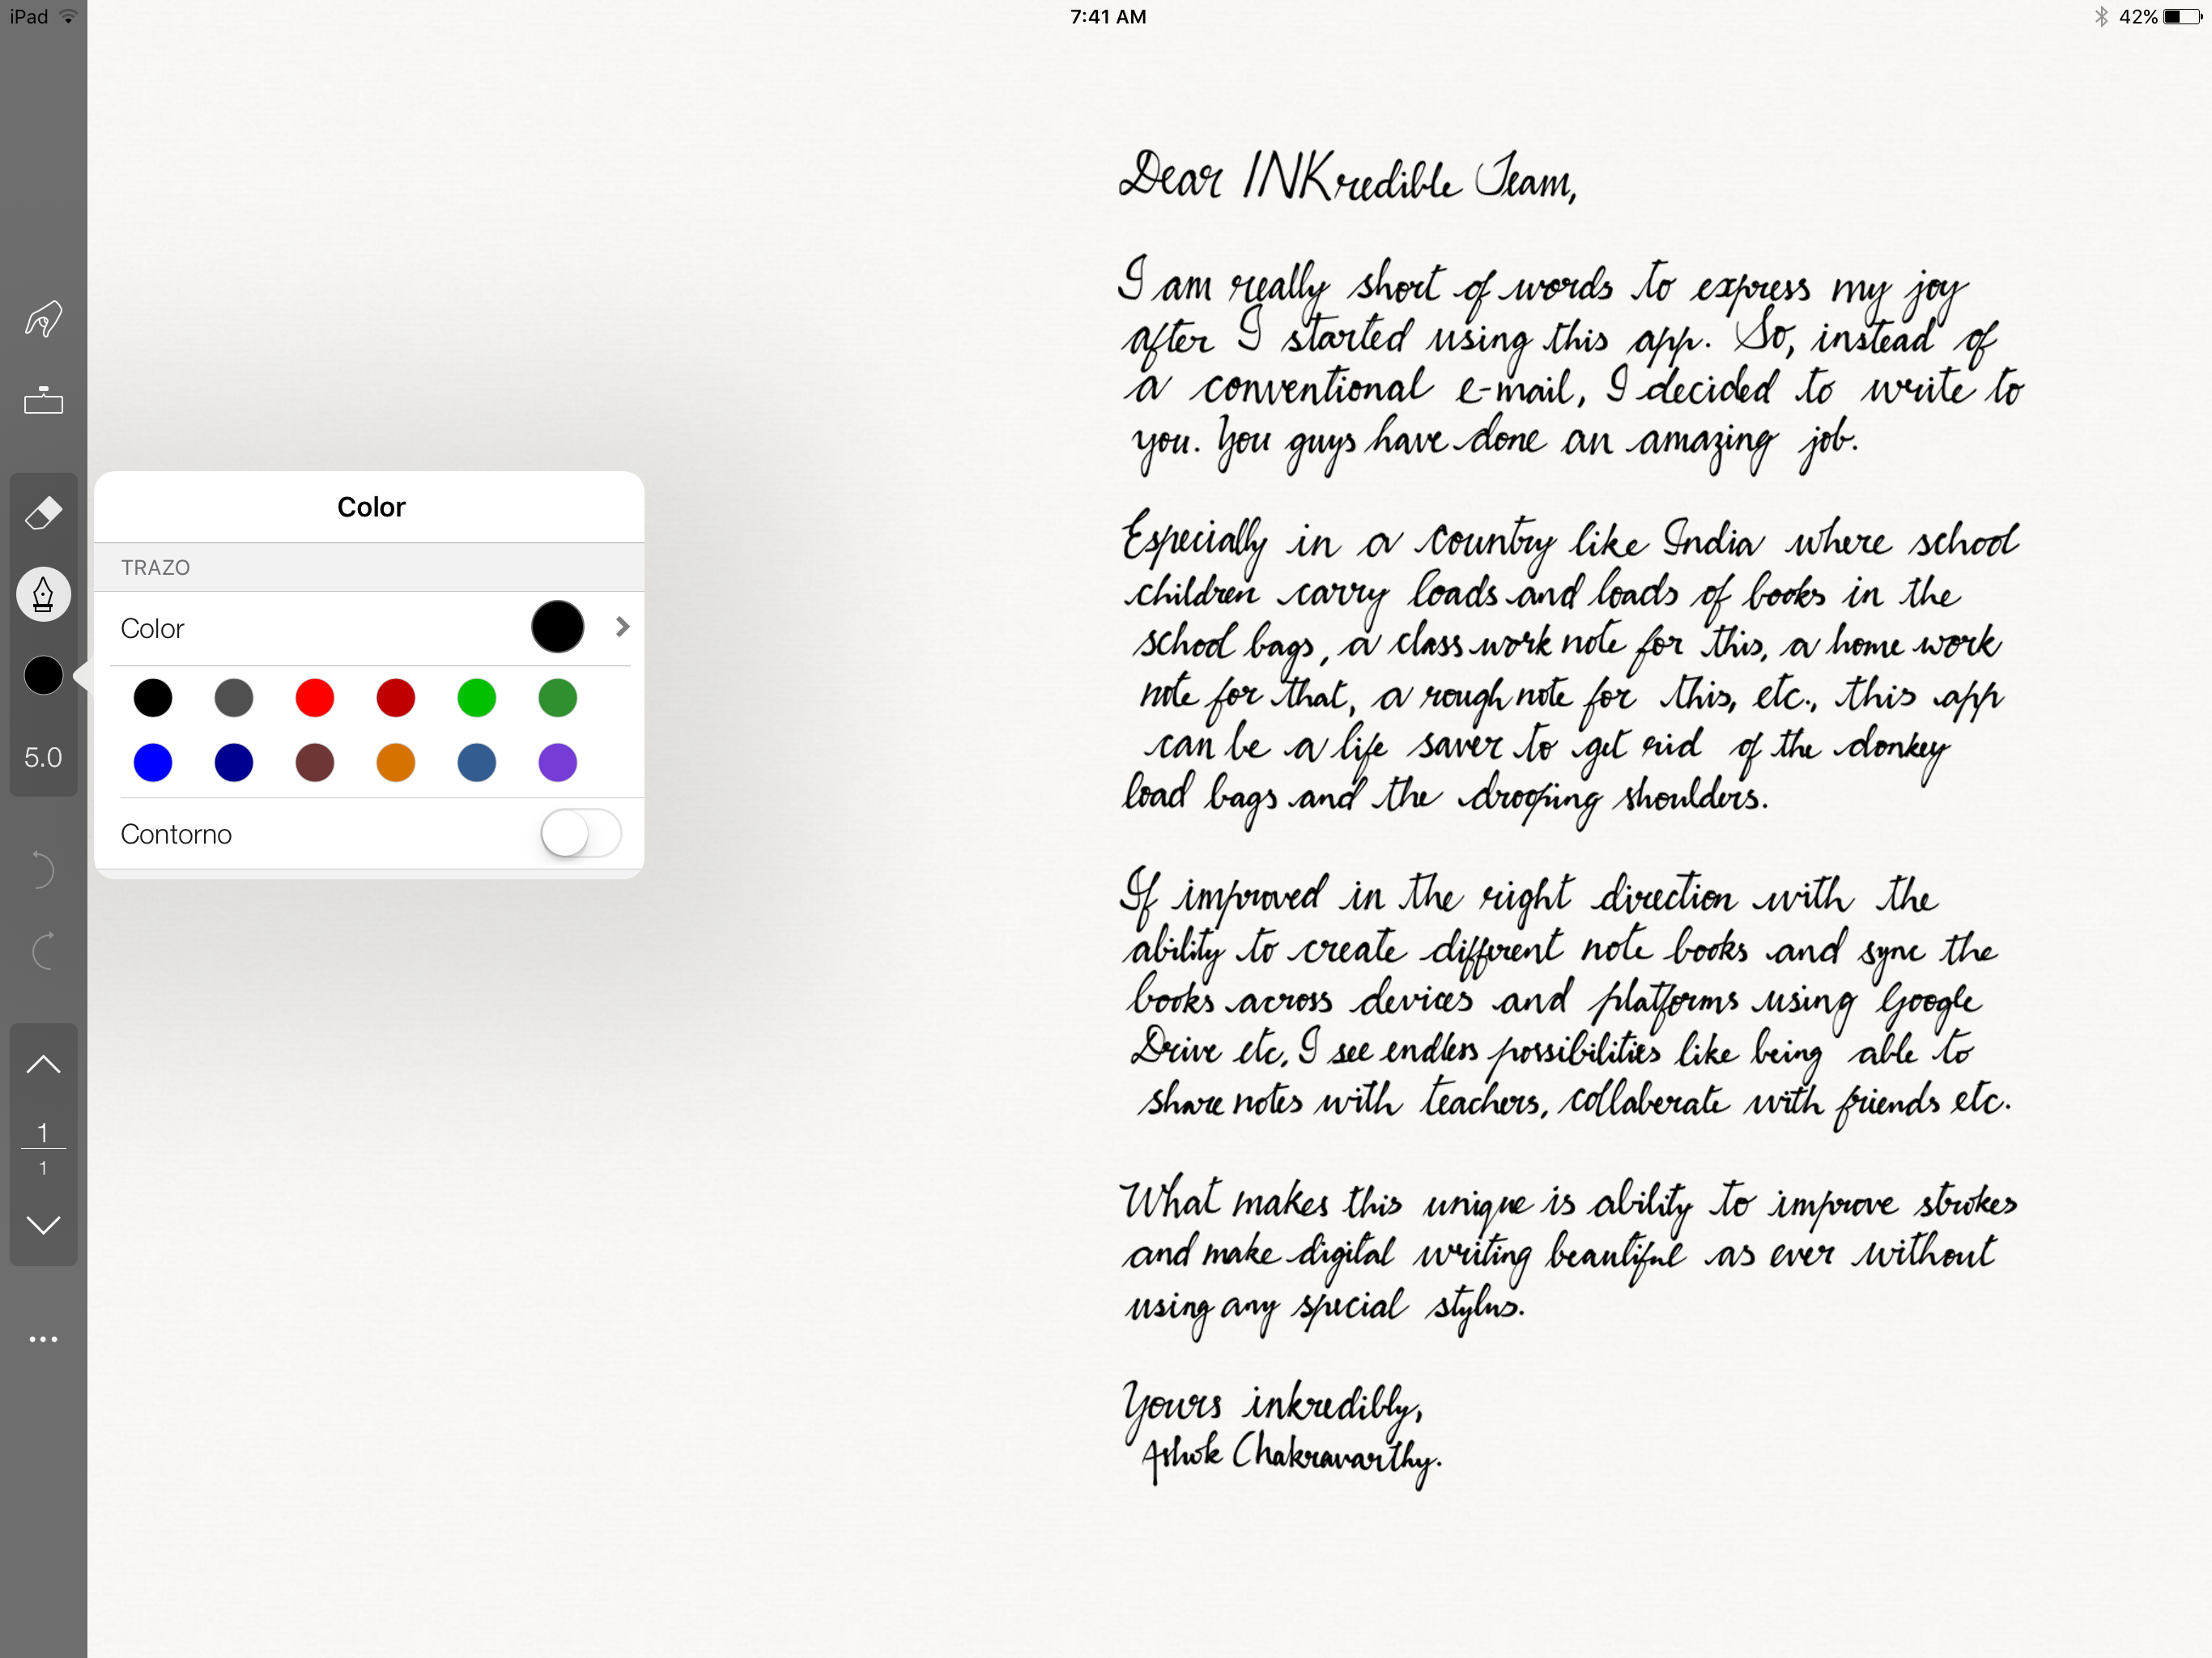 iPad
7:41 AM
42%
5.0
1
1
Color
TRAZO
Color
Contorno
Dear INKredible Team,
I am really short of words to express my joy
after I started using this app. So, instead of
a conventional e-mail, I decided to write to
you. You guys have done an amazing job.
Especially in a country like India where school
children carry loads and loads of books in the
school bags, a class work note for this, a home work
note for that, a rough note for this, etc., this app
can be a life saver to get rid of the donkey
load bags and the drooping shoulders.
If improved in the right direction with the
ability to create different note books and sync the
books across devices and platforms using Google
Drive etc, I see endless possibilities like being able to
share notes with teachers, collaberate with friends etc.
What makes this unique is ability to improve strokes
and make digital writing beautiful as ever without
using any special stylus.
Yours inkredibly,
Ashok Chakravarthy.